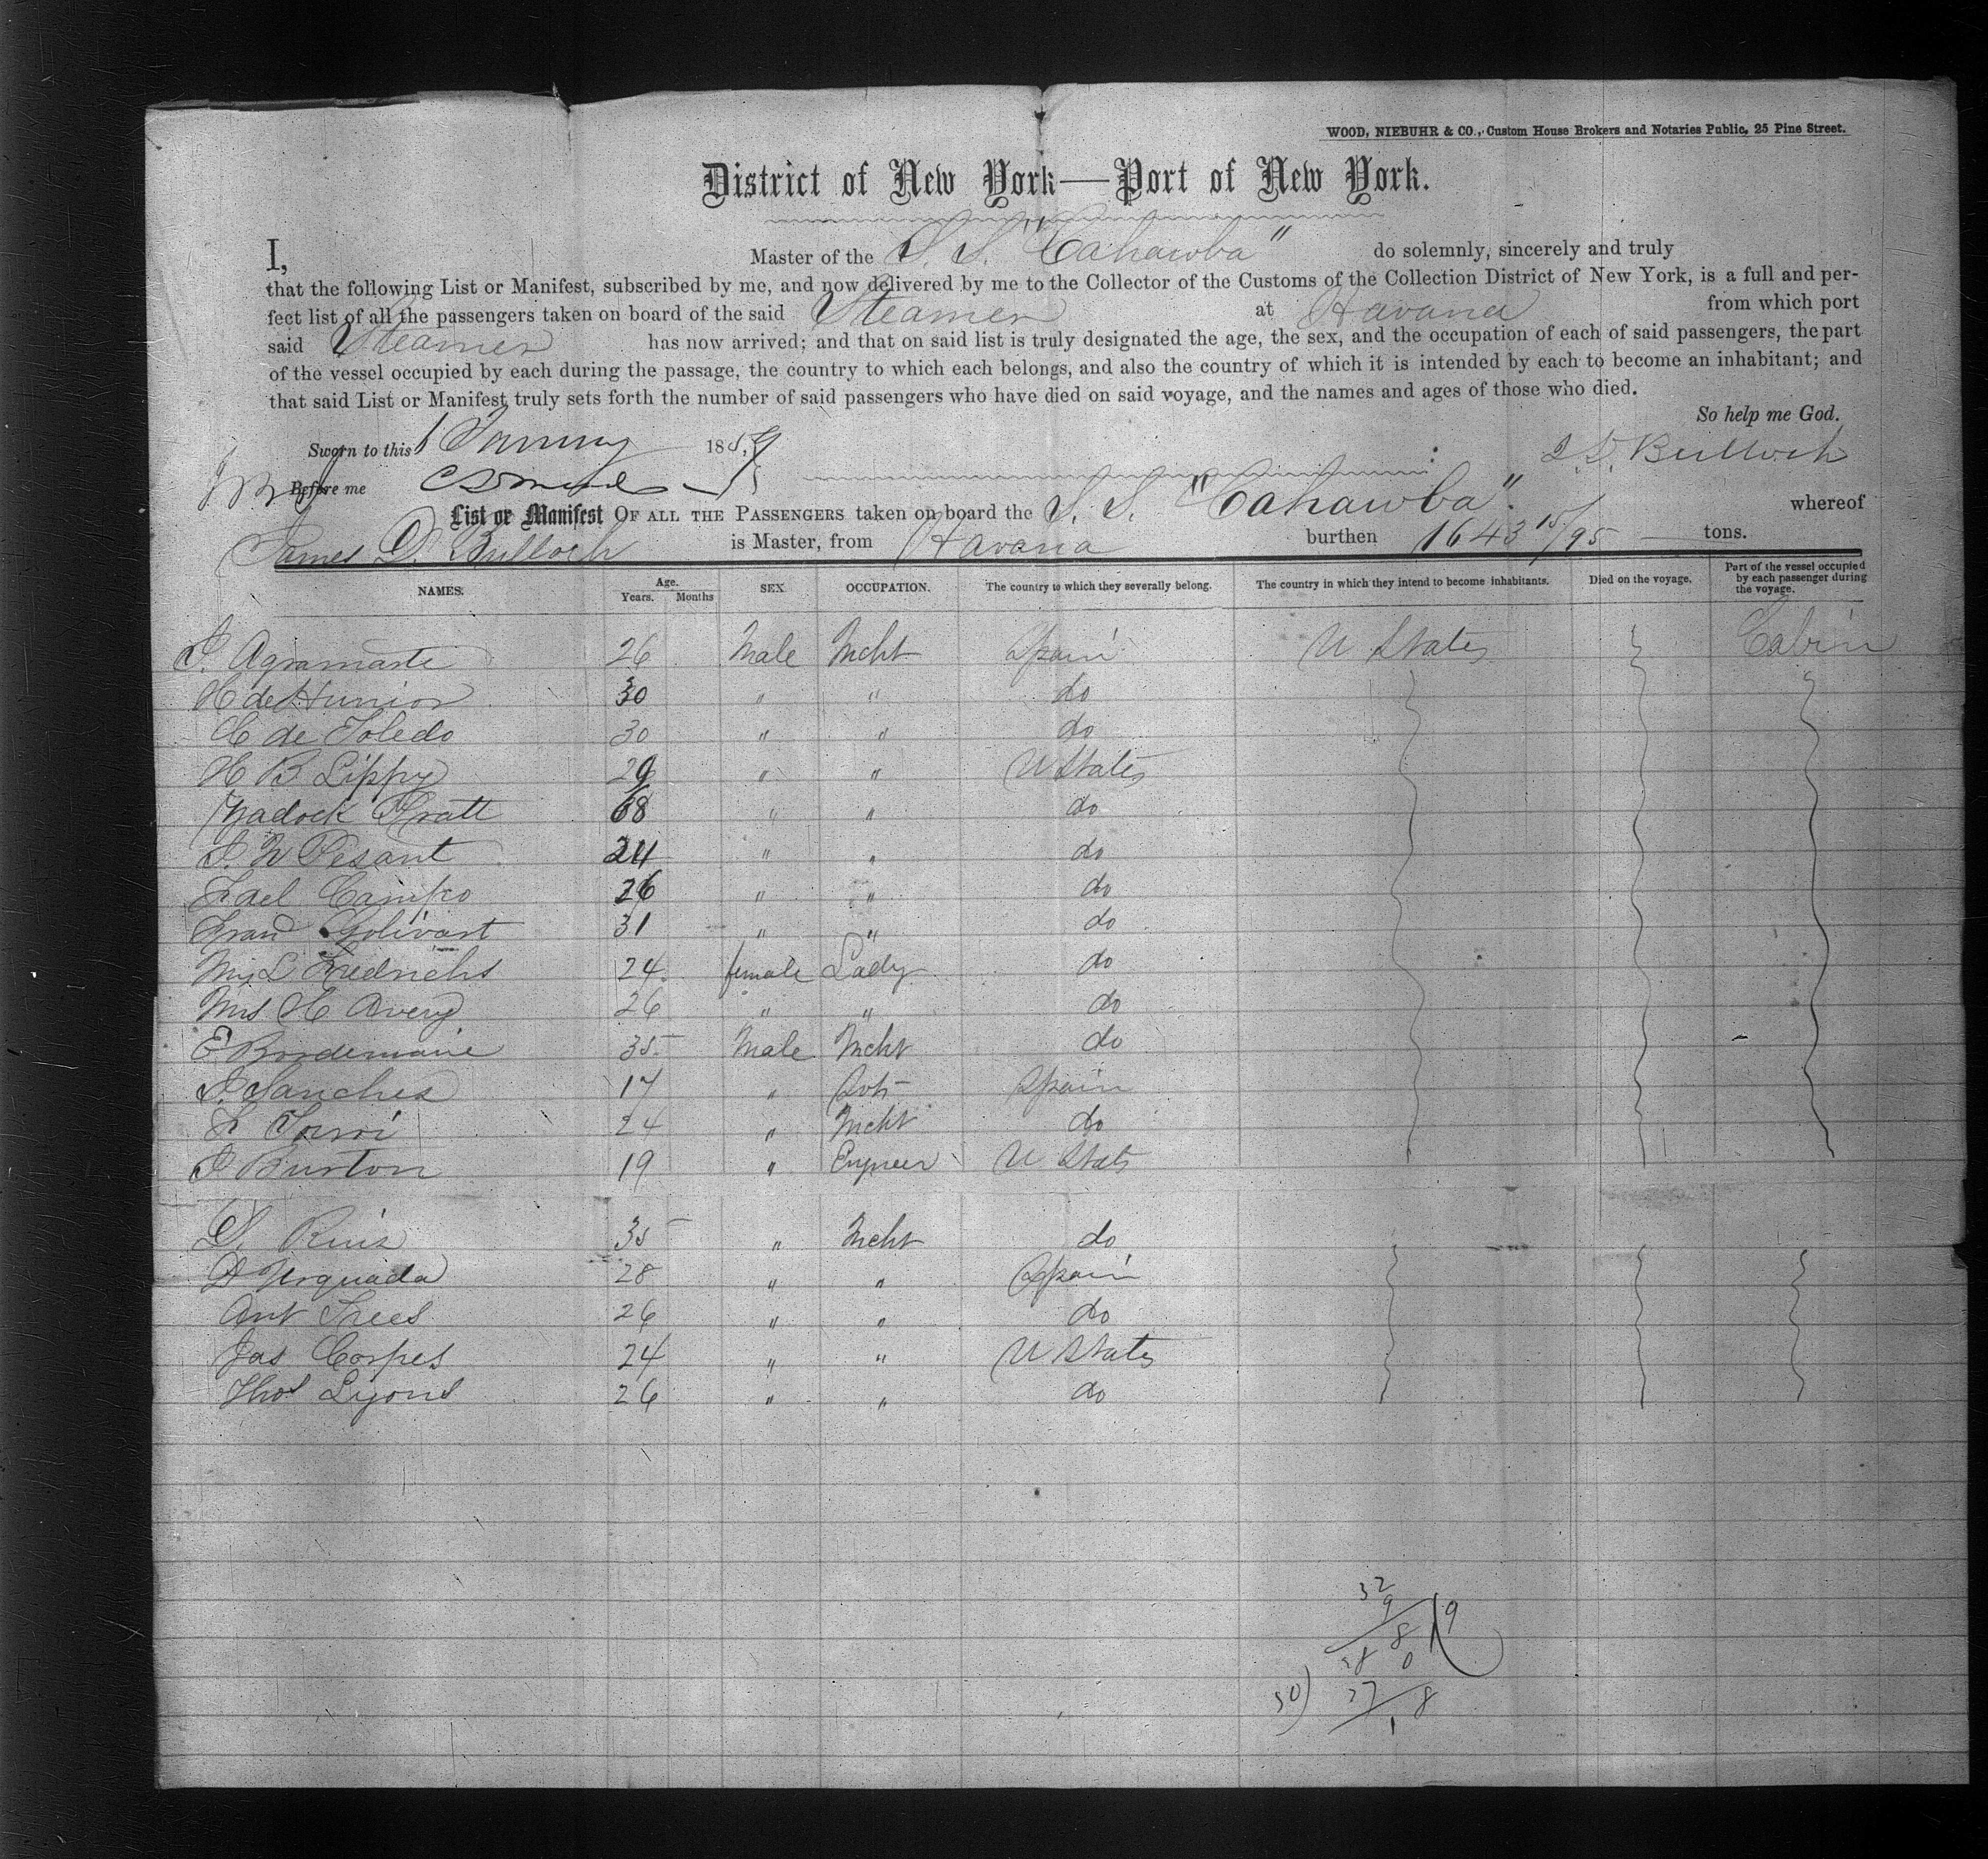 WOOD, NIEBUHR & CO., Custom House Brokers and Notaries Public, 25 Pine Street.
District of New York—Port of New York.
I, Master of the S. S. "Cahawba" do solemnly, sincerely and truly
that the following List or Manifest, subscribed by me, and now delivered by me to the Collector of the Customs of the Collection District of New York, is a full and per-
fect list of all the passengers taken on board of the said Steamer at Havana from which port
said Steamer has now arrived; and that on said list is truly designated the age, the sex, and the occupation of each of said passengers, the part
of the vessel occupied by each during the passage, the country to which each belongs, and also the country of which it is intended by each to become an inhabitant; and
that said List or Manifest truly sets forth the number of said passengers who have died on said voyage, and the names and ages of those who died.
So help me God.
Sworn to this 1 January 1859
J D. Bulloch
Before me
List or Manifest OF ALL THE PASSENGERS taken on board the S. S. "Cahawba" whereof
James D. Bulloch is Master, from Havana burthen 1643 15/95 tons.
NAMES. Age. Years. Months SEX OCCUPATION. The country to which they severally belong. The country in which they intend to become inhabitants. Died on the voyage. Part of the vessel occupied by each passenger during the voyage.
J. Agramarte 26 Male Mcht Spain U States Cabin
30 " " do
C de Toledo 30 " " do
H B Lippy 29 " " U States
Zadock Pratt 68 " " do
J. W Pesant 24 " " do
F del Campo 26 " " do
Fran Golivart 31 " " do
L Fredrichs 24 female Lady do
Mrs H Avery 26 " " do
E 35 Male Mcht do
J. Sanches 17 " Spain
F 24 " Mcht do
J Burton 19 " Engneer U Stats
Ruiz 35 " Mcht do
D 28 " " Spain
Ant 26 " " do
Jas Corpes 24 " " U States
Thos Lyons 26 " " do
32
9
8 19
0
50) 27 8
1